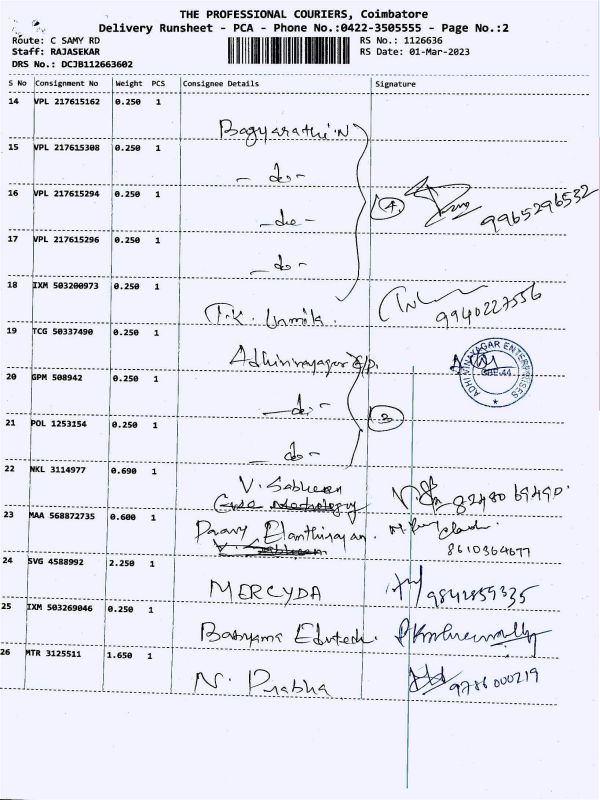 THE PROFESSIONAL COURIERS, Coimbatore
Delivery Runsheet - PCA - Phone No.:0422-3505555 - Page No.:2
Route: C SAMY RD
RS No.: 1126636
Staff: RAJASEKAR
RS Date: 01-Mar-2023
DRS No.: DCJB112663602
S No Consignment No Weight PCS Consignee Details Signature
14 VPL 217615162 0.250 1
Bagyarathi.N
15 VPL 217615308 0.250 1
- do -
16 VPL 217615294 0.250 1
- do -
4
9965296532
17 VPL 217615296 0.250 1
- do -
18 IXM 503200973 0.250 1
T.K.
9940227556
19 TCG 50337490 0.250 1
ADHI VINAYAGAR ENTERPRISES
20 GPM 508942 0.250 1
- do -
3
21 POL 1253154 0.250 1
- do -
22 NKL 3114977 0.690 1
V.
23 MAA 568872735 0.600 1
Elanthirayan.
8610364677
24 SVG 4588992 2.250 1
MERCYDA
9842859335
25 IXM 503269046 0.250 1
26 MTR 3125511 1.650 1
N. Prabha
9786000219